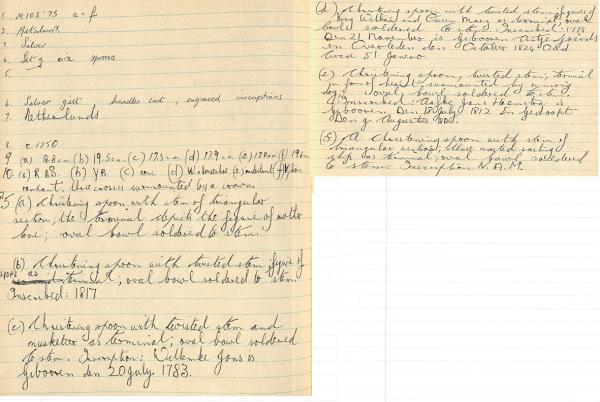 1. M103'75 a-f
2. Metalwork
3. Silver
4. Set of six spoons
5.
6. Silver gilt handles cast, engraved inscriptions
7. Netherlands
8. c 1750
9 (a) 18.8cm. (b) 19.5cm. (c) 17.3cm (d) 17.9cm (e) 17.8cm (f) 19.6cm
10. (a) R.B. (b) YB. (c) (d) (e) indistinct (f)
three crosses surmounted by a crown
5 (a) Christening spoon with stem of triangular
section, the terminal depicts the figure of mother
love; oval bowl soldered to stem.
(b) Christening spoon with twisted stem, figure of
HOPE as terminal; oval bowl soldered to stem.
Inscribed: 1817
(c) Christening spoon with twisted stem and
musketeer as terminal; oval bowl soldered
to stem. Inscription: Willemke Jans is
Gibooren den 20 July 1783.
(d) Christening spoon with twisted stem, figures of
King William and Queen Mary as terminal, oval
bowl soldered to stem. Inscribed: 1773
Den 21 November is Gebooren Antje Sjoerds
en Overleden den October 1824 Oud
51 Jaren
(e) Christening spoon, twisted stem, terminal
form of heart, surmounted by running
dog; oval bowl soldered to stem.
Inscribed: Aafke Jans is
Gebooren Den 18 July 1812 In Gedoopt
Den 9 Augustus
(f) A Christening spoon with stem of
triangular section, three masted sailing
ship as terminal, oval bowl soldered
to stem. Inscription N.A.M.